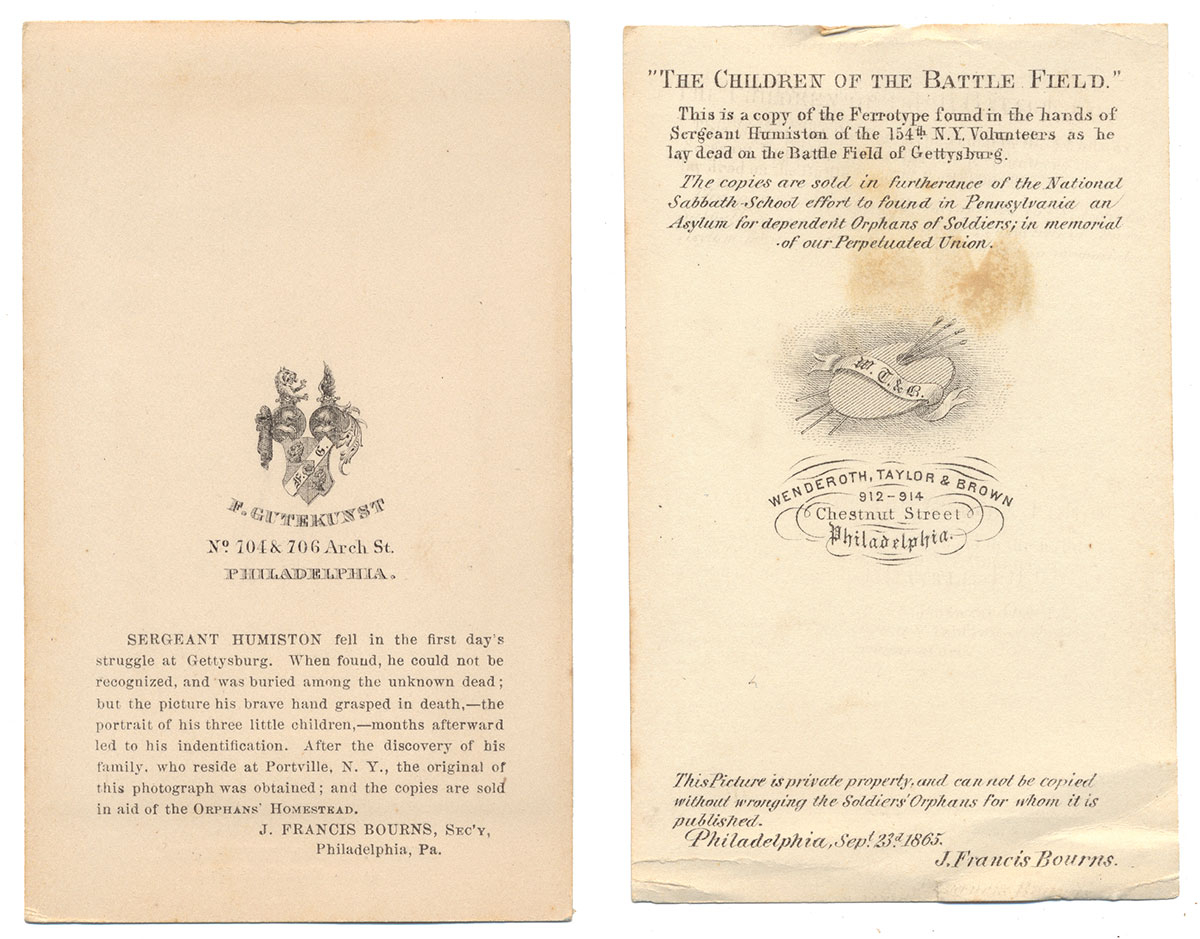 F. G.
F. GUTEKUNST
No. 704 & 706 Arch St.
PHILADELPHIA.
SERGEANT HUMISTON fell in the first day's
struggle at Gettysburg. When found, he could not be
recognized, and was buried among the unknown dead;
but the picture his brave hand grasped in death,—the
portrait of his three little children,—months afterward
led to his indentification. After the discovery of his
family, who reside at Portville, N. Y., the original of
this photograph was obtained; and the copies are sold
in aid of the ORPHANS' HOMESTEAD.
J. FRANCIS BOURNS, SEC'Y,
Philadelphia, Pa.
"THE CHILDREN OF THE BATTLE FIELD."
This is a copy of the Ferrotype found in the hands of
Sergeant Humiston of the 154th N.Y. Volunteers as he
lay dead on the Battle Field of Gettysburg.
The copies are sold in furtherance of the National
Sabbath-School effort to found in Pennsylvania an
Asylum for dependent Orphans of Soldiers; in memorial
of our Perpetuated Union.
W. T. & B.
WENDEROTH, TAYLOR & BROWN
912-914
Chestnut Street
Philadelphia.
This Picture is private property, and can not be copied
without wronging the Soldiers' Orphans for whom it is
published.
Philadelphia, Sept. 23d. 1865.
J. Francis Bourns.